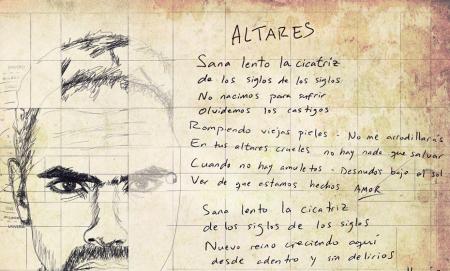 ALTARES
Sana lento la cicatriz
de los siglos de los siglos
No nacimos para sufrir
Olvidemos los castigos
Rompiendo viejas pieles - No me arrodillarás
En tus altares crueles no hay nada que salvar
Cuando no hay amuletos - Desnudos bajo el sol
Ver de que estamos hechos AMOR
Sana lento la cicatriz
de los siglos de los siglos
Nuevo reino creciendo aquí
desde adentro y sin delirios